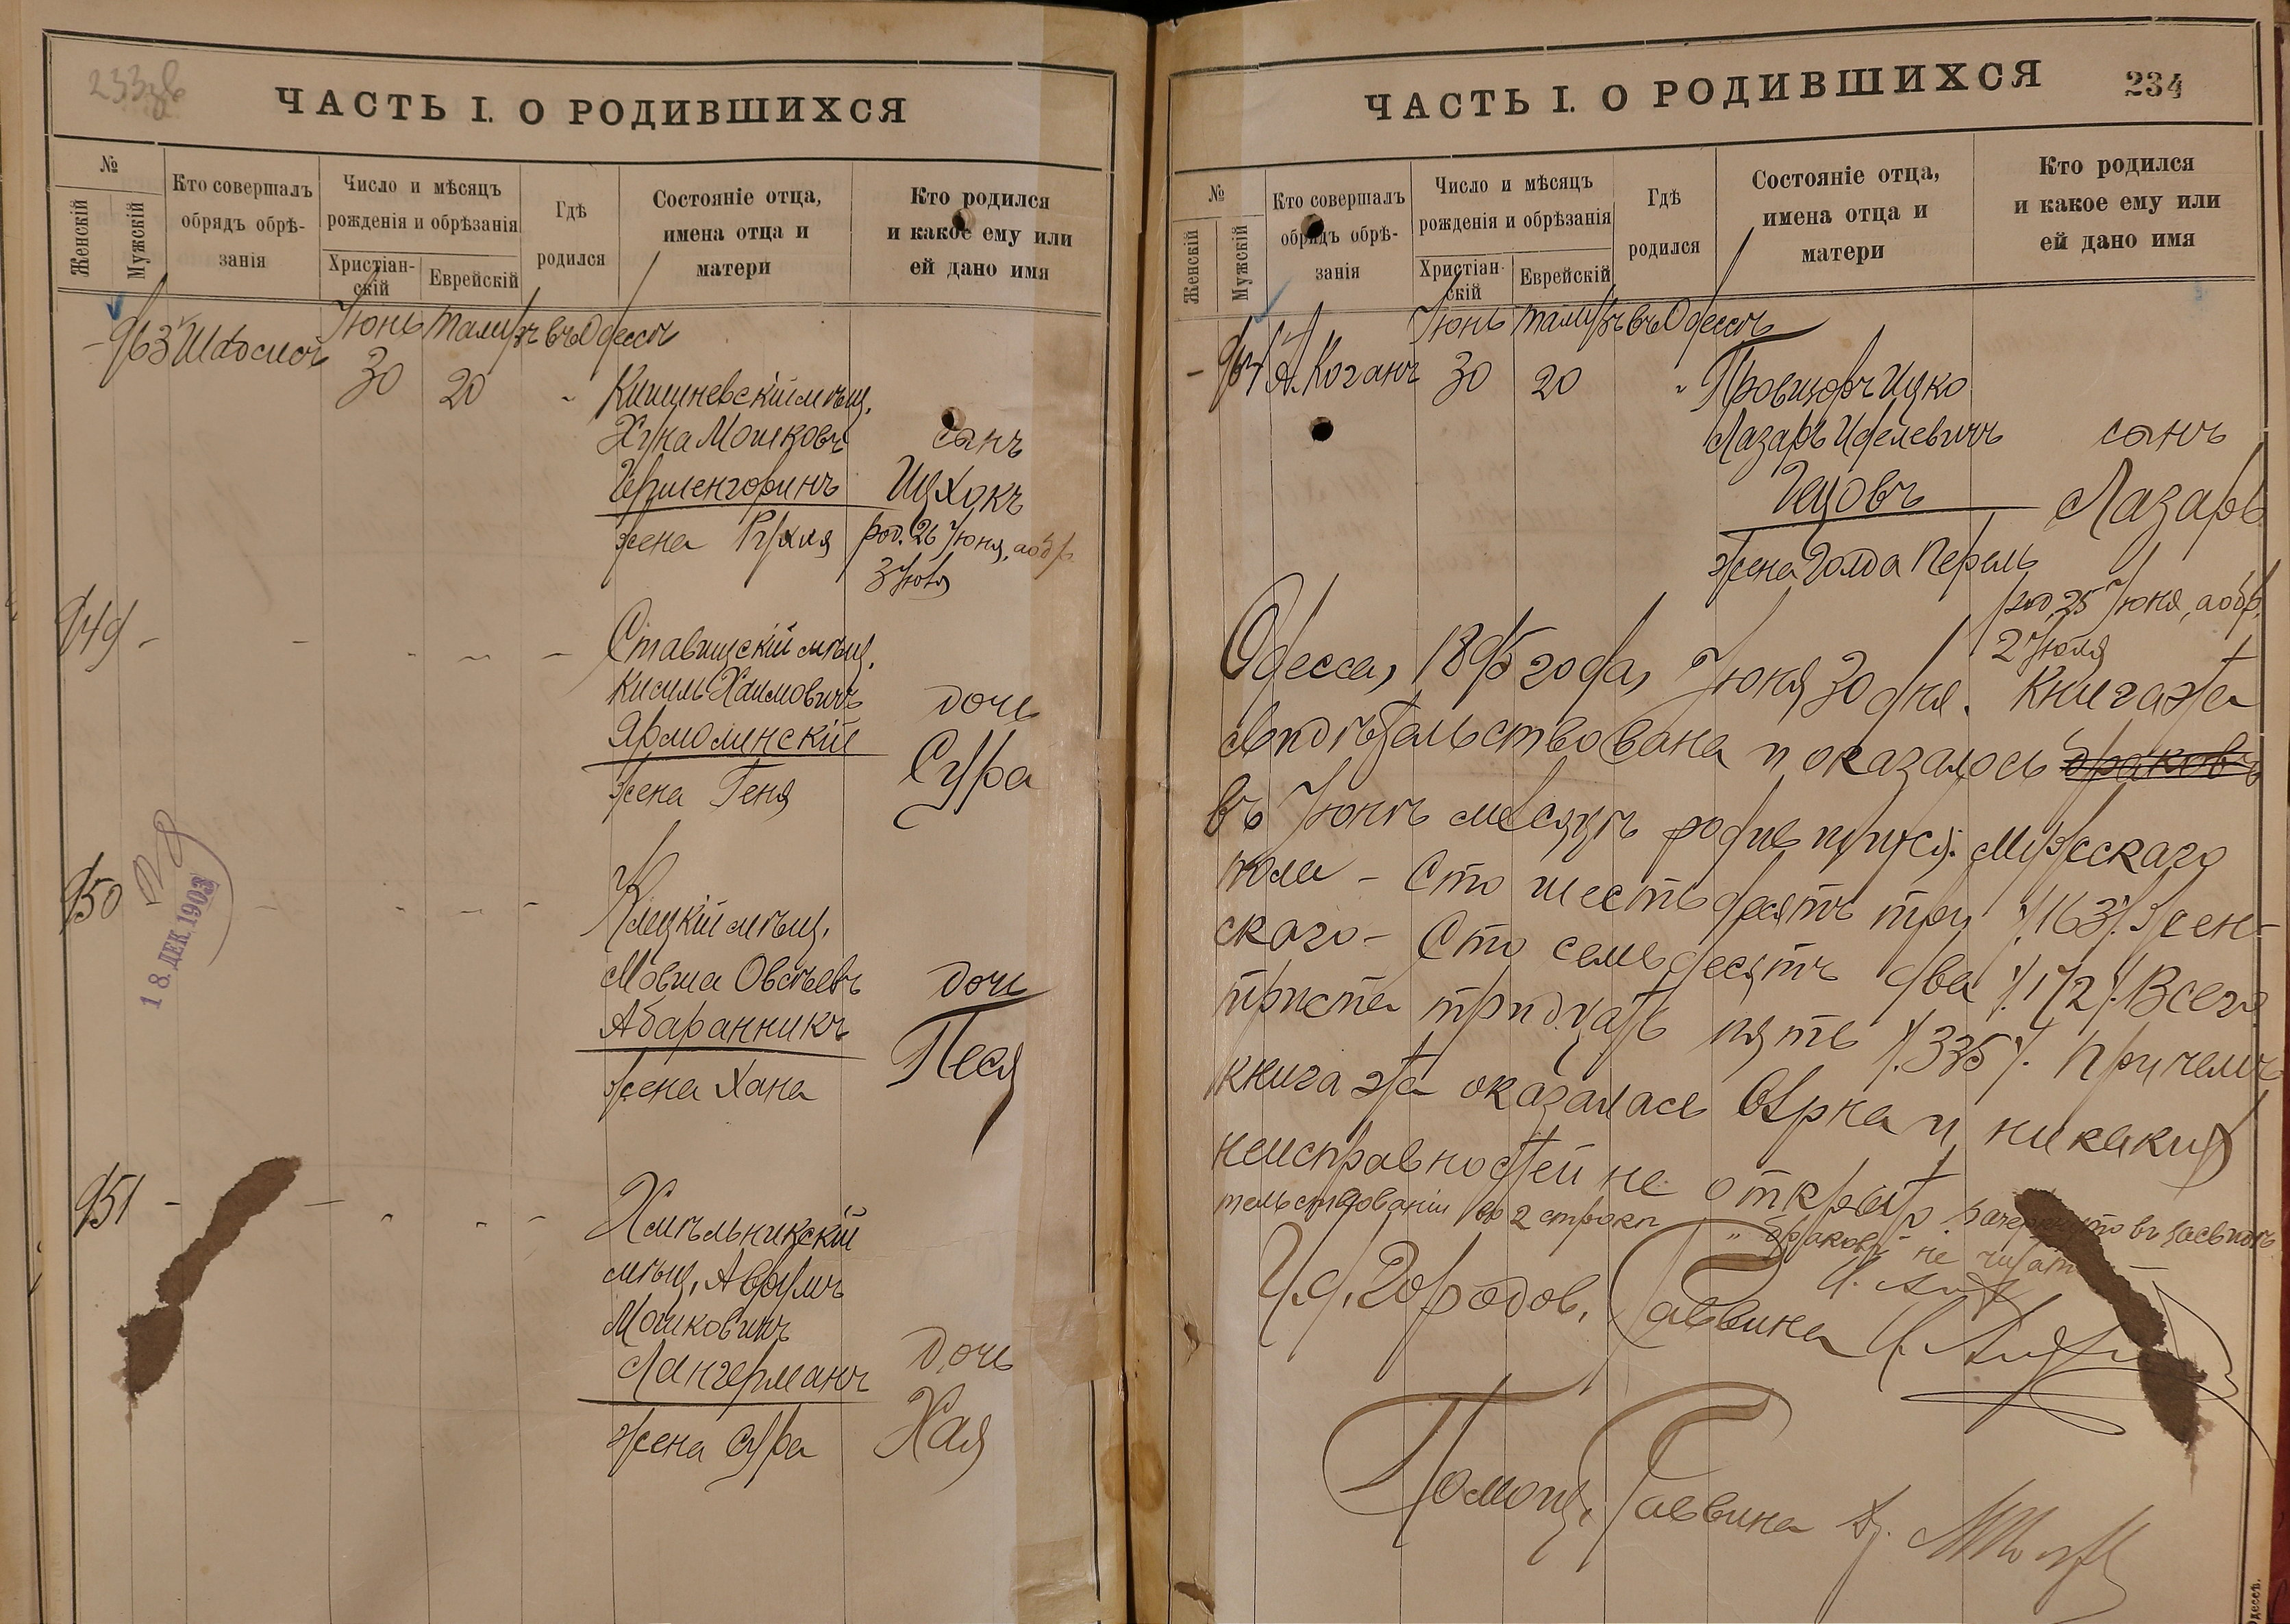 233об
ЧАСТЬ I. О РОДИВШИХСЯ
№
Женскій
Мужскій
Кто совершалъ
обрядъ обрѣ-
занія
Число и мѣсяцъ
рожденія и обрѣзанія
Христіан-
скій
Еврейскій
Гдѣ
родился
Состояніе отца,
имена отца и
матери
Кто родился
и какое ему или
ей дано имя
Іюнь Тамузъ въ Одессѣ
- 963
30 20 " Кишиневскій мѣщ.
Мошковъ сынъ
Ицхокъ
жена Рухля род. 26 Іюня, а обр.
3 Іюля
949 - Ставищскій мѣщ.
Кисиль Хаимовичъ дочь
Ярмолинскій Сура
жена Геня
950 Клецкій мѣщ.
Мовша Овсѣевъ дочь
Абаранникъ Песя
жена Хана
18. ДЕК. 1903
951 - Хмѣльникскій
мѣщ. Аврумъ
Мошковичъ
Лангерманъ дочь
жена Сура Хая
ЧАСТЬ I. О РОДИВШИХСЯ
234
№
Женскій
Мужскій
Кто совершалъ
обрядъ обрѣ-
занія
Число и мѣсяцъ
рожденія и обрѣзанія
Христіан-
скій
Еврейскій
Гдѣ
родился
Состояніе отца,
имена отца и
матери
Кто родился
и какое ему или
ей дано имя
Іюнь Тамузъ въ Одессѣ
- 964 А. Коганъ 30 20 " Провизоръ Ицко
Лазарь Иделевичъ сынъ
Лазарь
жена Голда Перель
род. 25 Іюня, а обр.
2 Іюля
Одесса, 1895 года, Іюня 30 дня. Книга эта
свидѣтельствована и оказалось браковъ
въ Іюнѣ месяцѣ родившихся: Мужескаго
пола - Сто шестьдесятъ три ·/.163·/. Жен-
скаго - Сто семьдесятъ два ·/.172·/. Всего
триста тридцать пять ·/.335·/. При чемъ
книга эта оказалась вѣрна и никакихъ
неисправностей не открыто. Зачеркнуто въ засвидѣ-
тельствованіи во 2 строкѣ "браковъ" не читать
И.д. Городов. Раввина
Помощ. Раввина